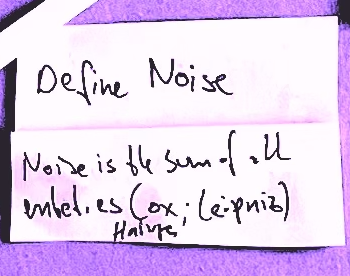 Define Noise
Noise is the sum of all
entities (ox; Leipniz)